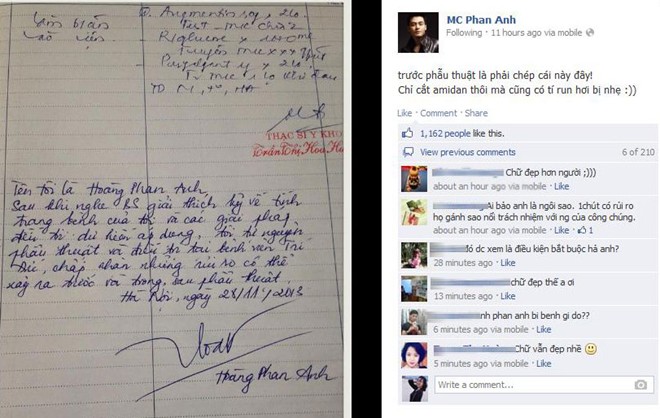 làm bilan
vào viện
Augmentin 1g x 2lo
Test - MC chia 2
- Rigluere x 1000ml
Truyền MC xxx
Tr MC
TD M, To, HA
THẠC SĨ Y KHO
Trần Thị Hoa
Tên tôi là Hoàng Phan Anh
Sau khi nghe BS giải thích kỹ về tình
trạng bệnh của tôi và các giải pháp
điều trị dự kiến áp dụng, tôi tự nguyện
phẫu thuật và điều trị tại bệnh viện Trí
Đức, chấp nhận những rủi ro có thể
xảy ra trước và trong, sau phẫu thuật.
Hà Nội, ngày 28/11/2013
Hoàng Phan Anh
MC Phan Anh
Following · 11 hours ago via mobile
trước phẫu thuật là phải chép cái này đây!
Chỉ cắt amidan thôi mà cũng có tí run hơi bị nhẹ :))
Like · Comment · Share
1,162 people like this.
View previous comments
6 of 210
Chữ đẹp hơn người ;)))
about an hour ago via mobile · Like
Ai bảo anh là ngôi sao. 1chút có rủi ro
họ gánh sao nổi trách nhiệm với ng của công chúng.
about an hour ago via mobile · Like · 1
đó dc xem là điều kiện bắt buộc hả anh?
28 minutes ago · Like
chữ đẹp thế a ơi
13 minutes ago · Like
nh phan anh bi benh gi do??
6 minutes ago via mobile · Like
Chữ vẫn đẹp nhề
5 minutes ago via mobile · Like
Write a comment...